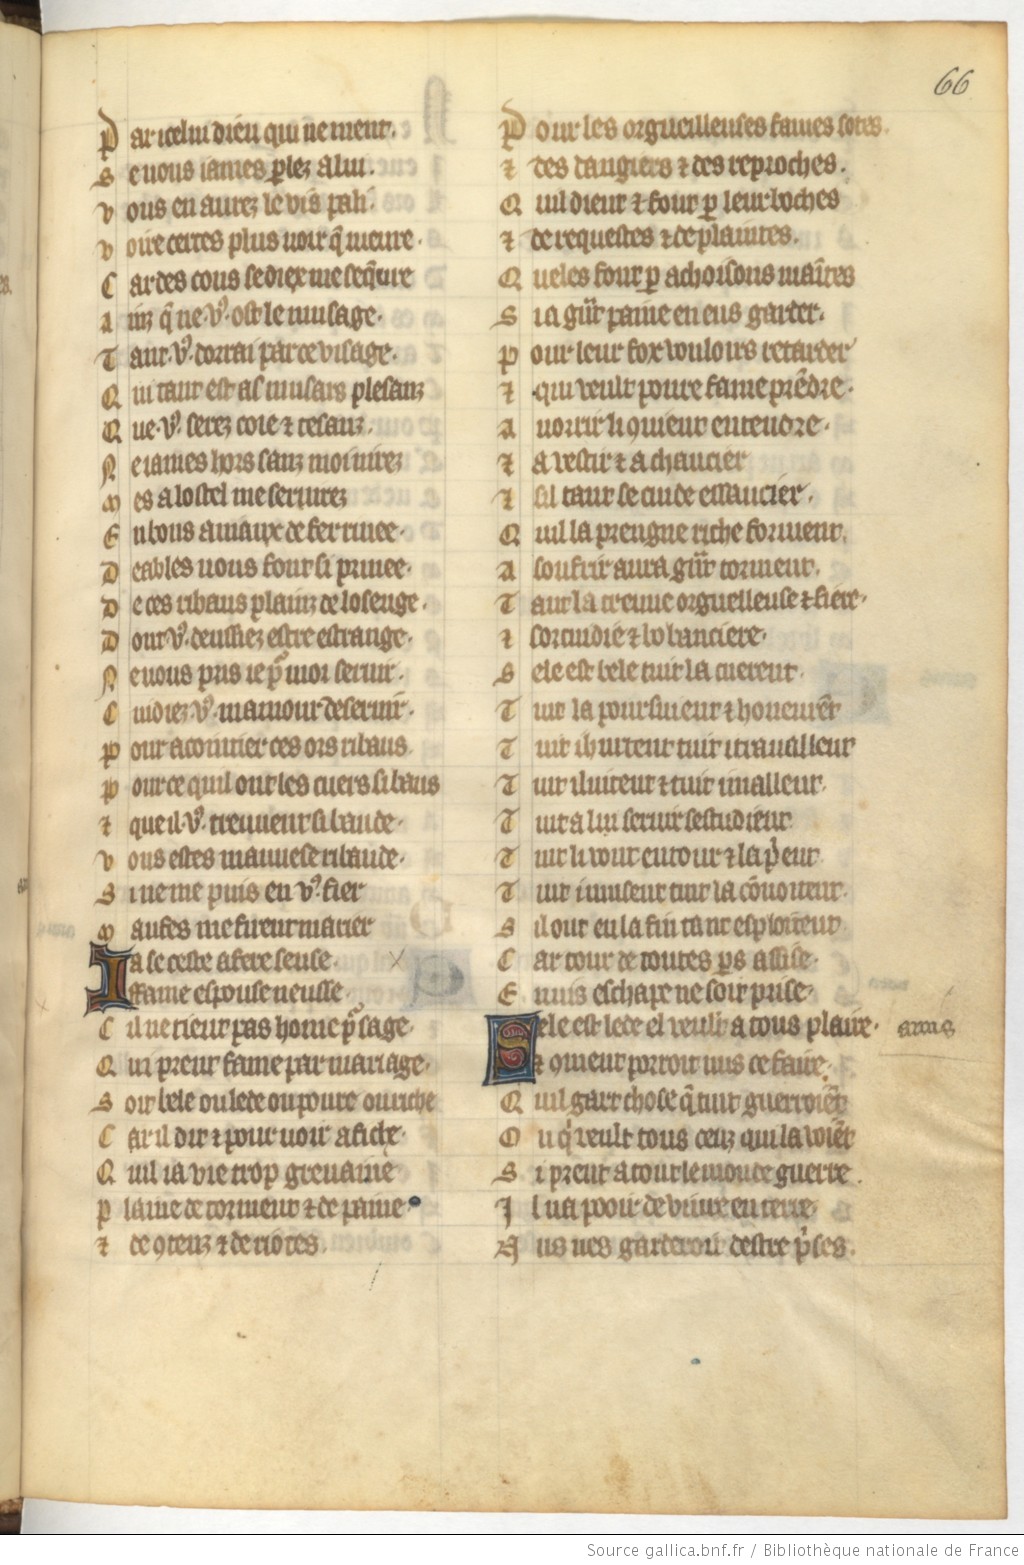 66
Par icelui dieu qui ne ment.
Se uous iames plez a lui.
Vous en aurez le uis pali.
Voire certes plus noir q̃ meure.
Car des cous se diex me seq̃ure
Ainz q̃ ne v9 ost le musage.
Tant v9 dorrai par ce uisage.
Qui tant est as musars plesanz
Que v9 serez coie ⁊ tesanz.
Ne iames hors sanz moi nirez
Mes a lostel me serurez
En bons aniaux de fer riuee.
Deables uous font si priuee.
De ces ribaus plainz de losenge.
Dont v9 deussiez estre estrange.
Ne uous pris ie pour moi seruir.
Cuidiez v9 mamour deseruir.
Pour acointier ces ors ribaus
Pour ce quil ont les cuers si baus
⁊ que il v9 treuuent si baude.
Vous estes mauuese ribaude.
Si ne me puis en v9 fier
Maufes me firent marier
Ia se ceste afere seusse.
Fame espouse neusse.
Cil ne tient pas home pour sage.
Qui prent fame par mariage.
Soit bele ou lede ou poure ou riche
Car il dit ⁊ pour uoir afiche.
Quil ia uie trop greuaine
Plaine de torment ⁊ de paine.
⁊ de 9tenz ⁊ de riotes.
Pour les orgueilleuses fames sotes.
⁊ des dangiers ⁊ des reproches.
Quil dient ⁊ font p leur boches
⁊ de requestes ⁊ de plaintes.
Queles font p achoisons maĩtes
Si a gñt paine en eus garder.
Pour leur fox uouloirs retarder
⁊ qui veult poure fame prẽdre.
A norrir li 9uient entendre.
⁊ a uestir ⁊ a chaucier
⁊ sil tant se cuide essaucier.
Quil la prengne riche forment.
A soufrir aura gñt torment.
Tant la treuue orguelleuse ⁊ fiere.
⁊ sorcuidie ⁊ bobanciere.
Sele est bele tuit la cuerent
Tuit la poursiuent ⁊ honeurẽt
Tuit i hurtent tuit i trauaillent
Tuit i luitent ⁊ tuit i maillent.
Tuit a lui seruir sestudient
Tuit li uont entour ⁊ la prient
Tuit i musent tuit la cõuoitent.
Si lont en la fin tant esploitent
Car tour de toutes pars assise.
Enuis eschape ne soit prise.
Sele est lede el veult a tous plaire.
⁊ 9ment porroit nus ce faire.
Quil gart chose q̃ tuit guerroiẽt
Ou qui veult tous ceuz qui la uoiẽt
Sil prent a tout le monde guerre.
Il na pooir de uiure en terre.
Nus nes garderoit destre prises.